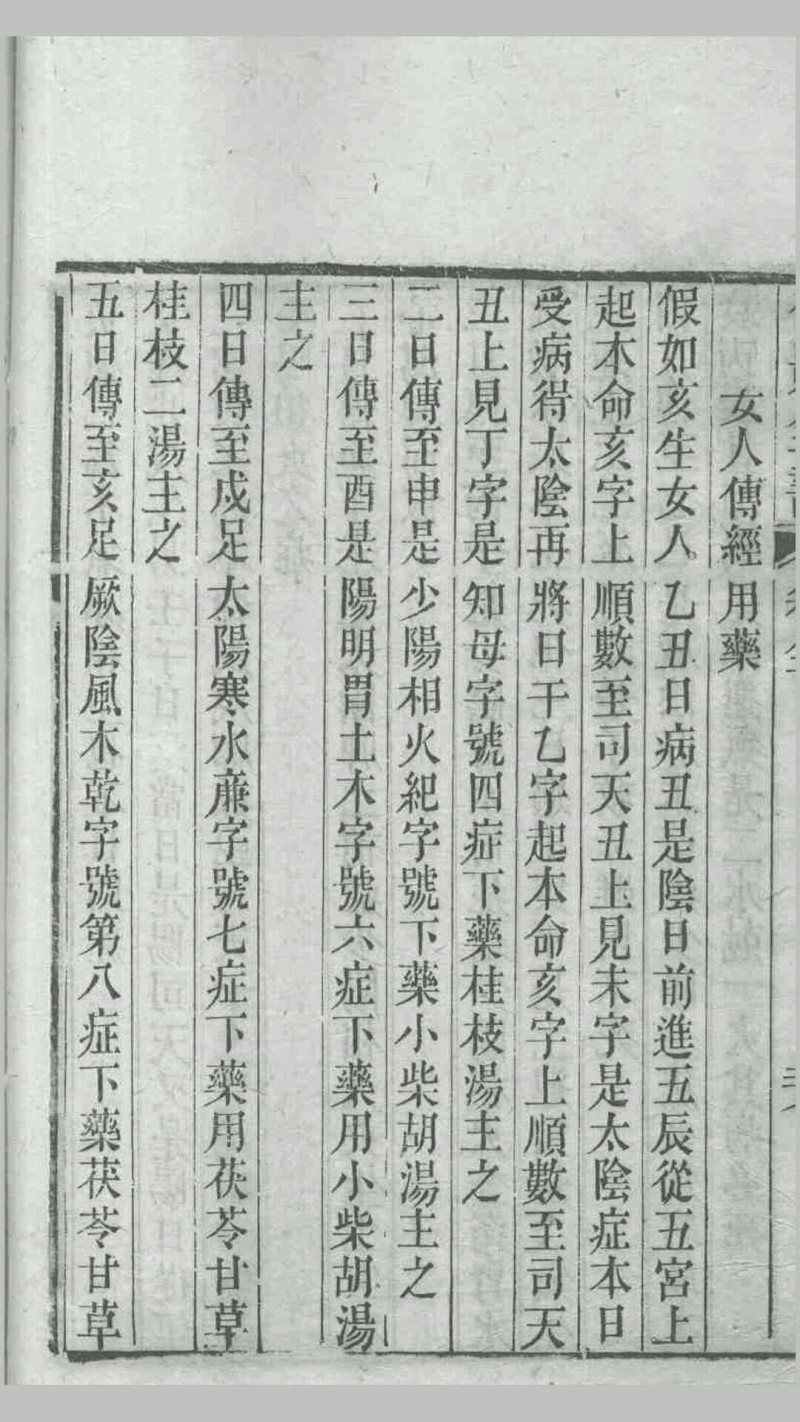 女人傳經用藥
假如亥生女人乙丑日病丑是陰日前進五辰從五宮上
起本命亥字上順數至司天丑上見未字是太陰症本日
受病得太陰再將日干乙字起本命亥字上順數至司天
丑上見丁字是知母字號四症下藥桂枝湯主之
二日傳至申是少陽相火紀字號下藥小柴胡湯主之
三日傳至酉是陽明胃土木字號六症下藥用小柴胡湯
主之
四日傳至戍足太陽寒水亷字號七症下藥用茯苓甘草
桂枝二湯主之
五日傳至亥足厥陰風木乾字號第八症下藥茯苓甘草